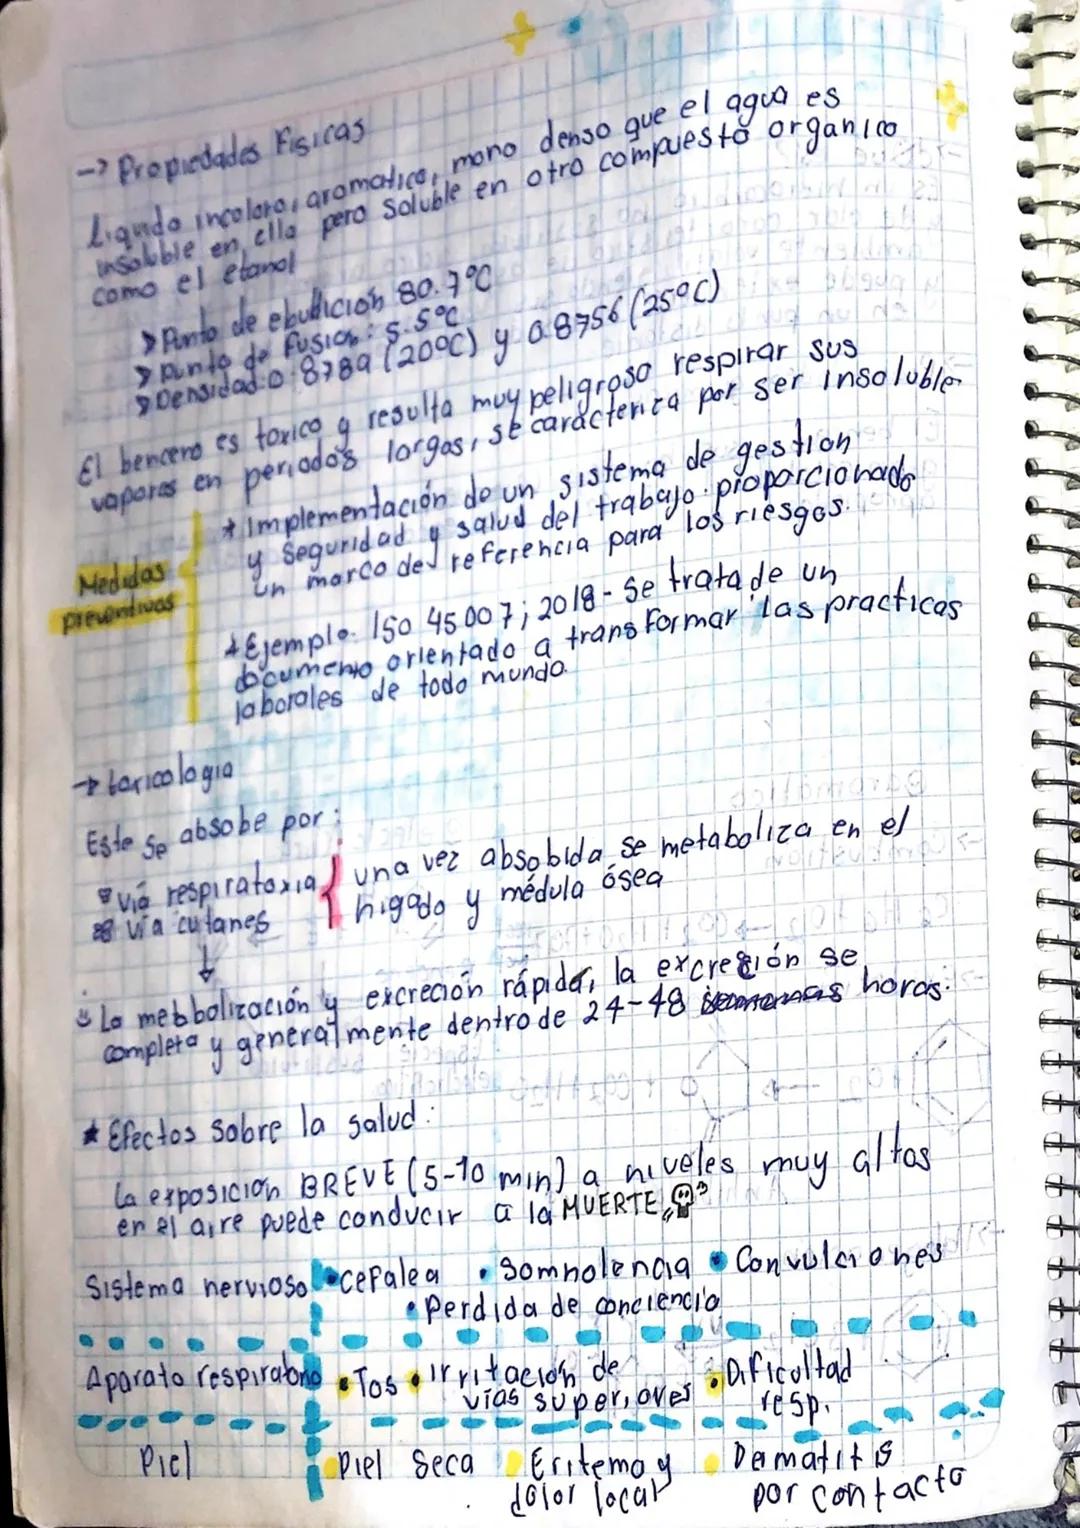 → Propiedades Fisicas
Liquido incoloro, aromatico, mono denso que el agua es
insoluble en ella pero soluble en otro compuesto organico
como el etanol
> Punto de ebullición 80.7°C
> punto de fusion: 5.5°C
> Densidad: 0.8789 (20°C) y 0.8756 (25°C)
El benceno es toxico y resulta muy peligroso respirar sus
vapores en periodos largos, se caracteriza por ser insoluble
Medidas
preventivas
* Implementación de un sistema de gestion
y seguridad y salud del trabajo proporcionado
un marco de referencia para los riesgos.
* Ejemplo. Iso 45007; 2018 - Se trata de un
documento orientado a transformar las practicas
laborales de todo mundo.
→ toxicologia
Este se absobe por:
via respiratoria
via cutanes
una vez absobida se metaboliza en el
higado y médula ósea
↓
La mebbolización y excreción rápida, la excreción se
completa y generalmente dentro de 24-48 semanas horas.
★ Efectos sobre la salud:
La exposicion BREVE (5-10 min) a niveles muy altos
en el aire puede conducir a la MUERTE
Sistema nervioso • cefalea • Somnolencia • Convulciones
• Perdida de conciencia
Aparato respiratorio • Tos • irritación de • Dificultad
vías superiores resp.
Piel Piel Seca Eritema y Dermatitis
dolor local por contacto